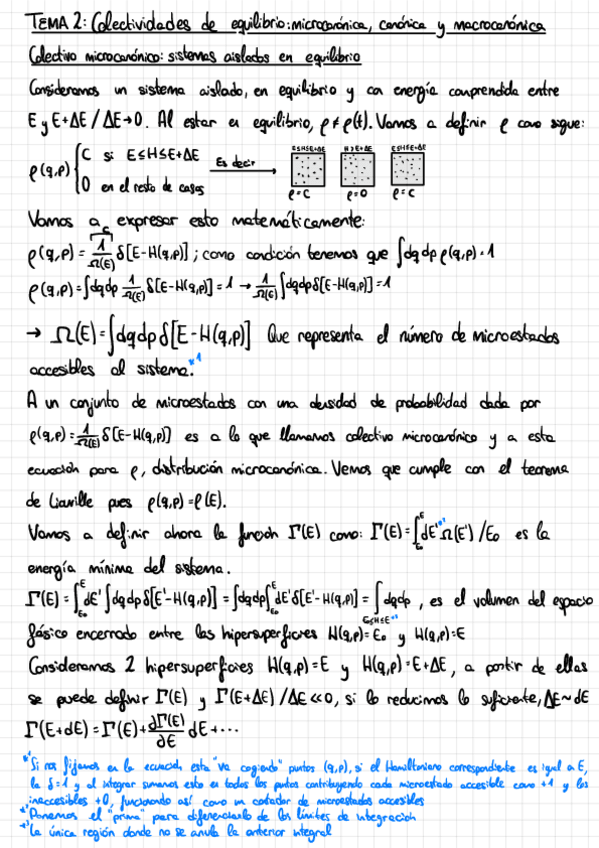 TEMA 2: Colectividades de equilibrio: microcanónica, canónica y macrocanónica
Colectivo microcanónico: sistemas aislados en equilibrio
Consideramos un sistema aislado, en equilibrio y con energía comprendida entre
E y E+ΔE / ΔE→0. Al estar en equilibrio, ρ≠ρ(t). Vamos a definir ρ como sigue:
ρ(q,p) { C si E≤H≤E+ΔE
0 en el resto de casos
Es decir
E≤H≤E+ΔE H>E+ΔE E≤H≤E+ΔE
ρ=C ρ=0 ρ=C
Vamos a expresar esto matemáticamente:
C
ρ(q,p) = 1/Ω(E) δ[E-H(q,p)] ; como condición tenemos que ∫dqdp ρ(q,p)=1
ρ(q,p)=∫dqdp 1/Ω(E) δ[E-H(q,p)] = 1 → 1/Ω(E) ∫dqdp δ[E-H(q,p)] = 1
→ Ω(E)=∫dqdp δ[E-H(q,p)] Que representa el número de microestados
accesibles al sistema.*1
A un conjunto de microestados con una densidad de probabilidad dada por
ρ(q,p)=1/Ω(E) δ[E-H(q,p)] es a lo que llamamos colectivo microcanónico y a esta
ecuación para ρ, distribución microcanónica. Vemos que cumple con el teorema
de Liouville pues ρ(q,p)=ρ(E).
Vamos a definir ahora la función Γ(E) como: Γ(E)=∫_{E₀}^{E} dE' Ω(E') / E₀ es la
energía mínima del sistema.
Γ(E)=∫_{E₀}^{E} dE' ∫dqdp δ[E'-H(q,p)] = ∫dqdp ∫_{E₀}^{E} dE' δ[E'-H(q,p)] = ∫_{E₀≤H≤E} dqdp , es el volumen del espacio
fásico encerrado entre las hipersuperficies H(q,p)=E₀ y H(q,p)=E
Consideramos 2 hipersuperficies H(q,p)=E y H(q,p)=E+ΔE, a partir de ellas
se puede definir Γ(E) y Γ(E+ΔE) / ΔE≪0, si lo reducimos lo suficiente, ΔE~dE
Γ(E+dE)=Γ(E)+∂Γ(E)/∂E dE+...
*1 Si nos fijamos en la ecuación esta "va cogiendo" puntos (q,p), si el Hamiltoniano correspondiente es igual a E,
la δ=1 y al integrar sumamos esto en todos los puntos contribuyendo cada microestado accesible como +1 y los
inaccesibles +0, funcionando así como un contador de microestados accesibles
Ponemos el "prima" para diferenciarlo de los límites de integración
La única región donde no se anula la anterior integral